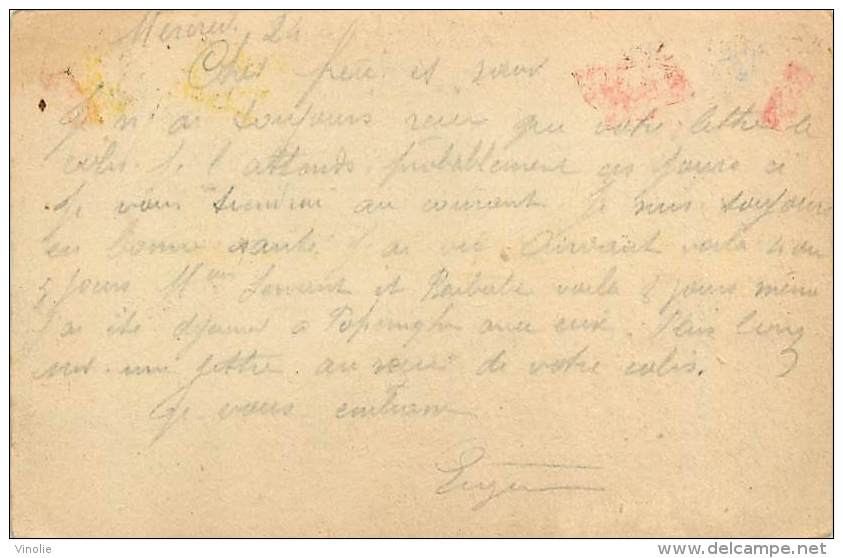 Mercredi 24
Cher frère et sœur
Je n'ai toujours reçu que votre lettre le
colis je l'attends probablement ces jours ci
Je vous tiendrai au courant. Je suis toujours
en bonne santé. J'ai vu voilà 4 ou
5 jours Mrs et voilà 8 jours même
j'ai été déjeuner à Poperinghe avec eux. Plus long
sur une lettre au reçu de votre colis.
Je vous embrasse
Eugène
Vinolie
www.delcampe.net